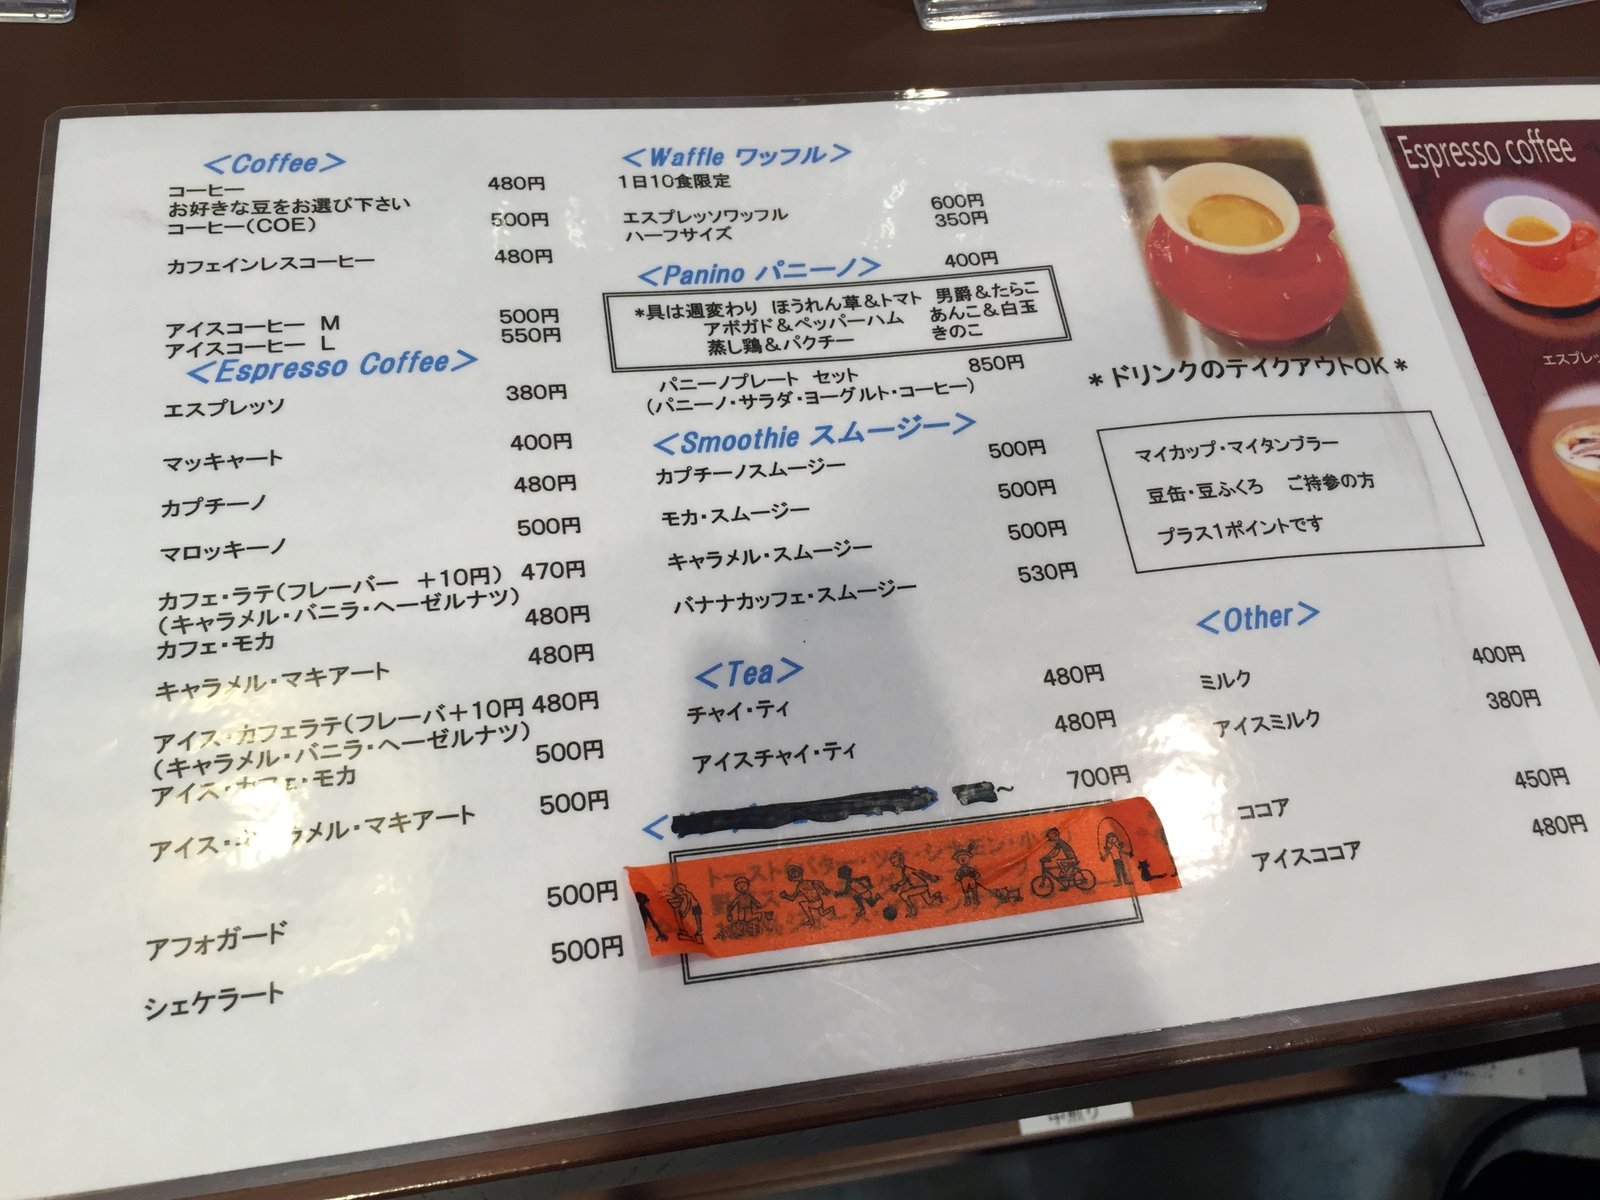 ＜Coffee＞
コーヒー 480円
お好きな豆をお選び下さい
コーヒー(COE) 500円
カフェインレスコーヒー 480円
アイスコーヒー M 500円
アイスコーヒー L 550円
＜Espresso Coffee＞
エスプレッソ 380円
マッキャート 400円
カプチーノ 480円
マロッキーノ 500円
カフェ・ラテ(フレーバー ＋10円) 470円
(キャラメル・バニラ・ヘーゼルナツ)
カフェ・モカ 480円
キャラメル・マキアート 480円
アイス・カフェラテ(フレーバ＋10円 480円
(キャラメル・バニラ・ヘーゼルナツ)
アイス・カフェ・モカ 500円
アイス・キャラメル・マキアート 500円
アフォガード 500円
シェケラート 500円
＜Waffle ワッフル＞
1日10食限定
エスプレッソワッフル 600円
ハーフサイズ 350円
＜Panino パニーノ＞ 400円
*具は週変わり ほうれん草＆トマト 男爵＆たらこ
アボガド＆ペッパーハム あんこ＆白玉
蒸し鶏＆パクチー きのこ
パニーノプレート セット 850円
(パニーノ・サラダ・ヨーグルト・コーヒー)
＜Smoothie スムージー＞
カプチーノスムージー 500円
モカ・スムージー 500円
キャラメル・スムージー 500円
バナナカッフェ・スムージー 530円
＜Tea＞
チャイ・ティ 480円
アイスチャイ・ティ 480円
＜ ～ 700円
＊ドリンクのテイクアウトOK＊
マイカップ・マイタンブラー
豆缶・豆ふくろ ご持参の方
プラス1ポイントです
＜Other＞
ミルク 400円
アイスミルク 380円
ココア 450円
アイスココア 480円
Espresso coffee
エスプレッ